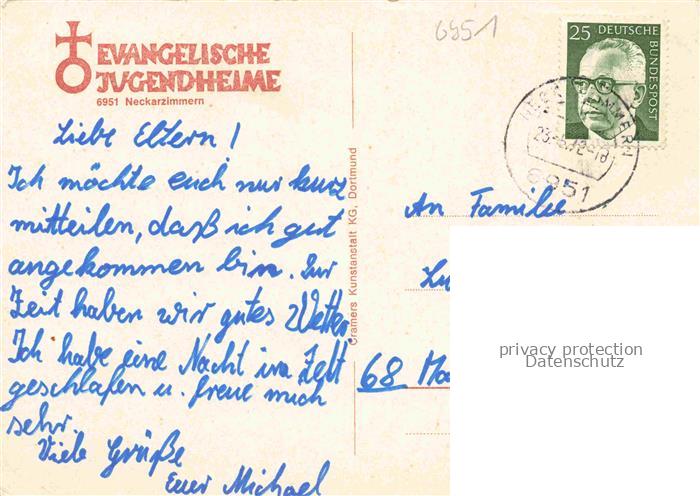 EVANGELISCHE
JUGENDHEIME
6951 Neckarzimmern
6951
25 DEUTSCHE
BUNDESPOST
23.-5.72-18
6951
Liebe Eltern!
Ich möchte euch nur kurz
mitteilen, daß ich gut
angekommen bin. Zur
Zeit haben wir gutes Wetter.
Ich habe eine Nacht im Zelt
geschlafen u. freue mich
sehr.
Viele Grüße
Euer Michael
Cramers Kunstanstalt KG, Dortmund
An Familie
Lu
68 Ma
privacy protection
Datenschutz